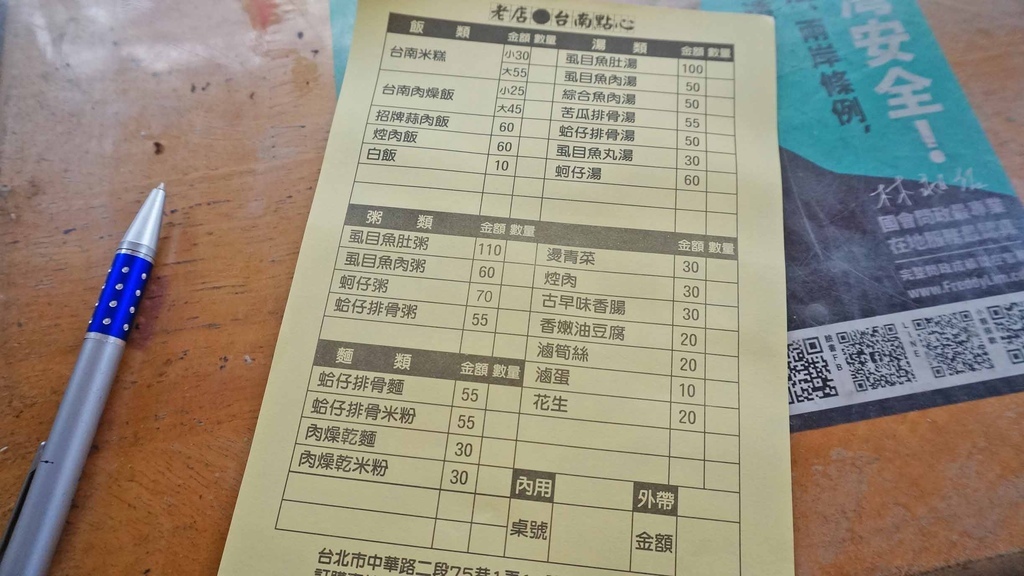 老店●台南點心
飯類 金額 數量 湯類 金額 數量
台南米糕 小30 虱目魚肚湯 100
大55 虱目魚肉湯 50
台南肉燥飯 小25 綜合魚肉湯 50
大45 苦瓜排骨湯 55
招牌蒜肉飯 60 蛤仔排骨湯 50
焢肉飯 60 虱目魚丸湯 30
白飯 10 蚵仔湯 60
粥類 金額 數量 金額 數量
虱目魚肚粥 110 燙青菜 30
虱目魚肉粥 60 焢肉 30
蚵仔粥 70 古早味香腸 30
蛤仔排骨粥 55 香嫩油豆腐 20
麵類 金額 數量 滷筍絲 20
蛤仔排骨麵 55 滷蛋 10
蛤仔排骨米粉 55 花生 20
肉燥乾麵 30
肉燥乾米粉 30
內用 外帶
桌號 金額
台北市中華路二段75巷1弄
灣安全！
兩岸條例，